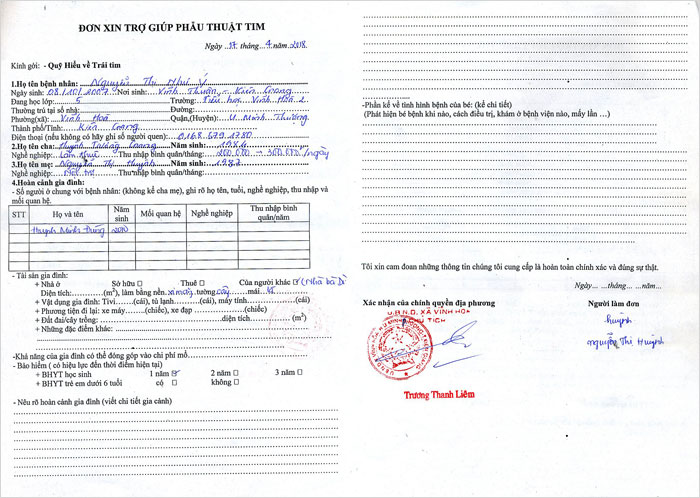 ĐƠN XIN TRỢ GIÚP PHẪU THUẬT TIM
Ngày 17 tháng 4 năm 2018
Kính gởi: - Quỹ Hiểu về Trái tim
1.Họ tên bệnh nhân: Nguyễn Thị Như Ý
Ngày sinh: 08/10/2007 Nơi sinh: Vĩnh Thuận - Kiên Giang
Đang học lớp: 5 Trường: Tiểu học Vĩnh Hòa 2
Thường trú tại số nhà: Đường:
Phường(xã): Vĩnh Hòa Quận,(Huyện): U Minh Thượng
Thành phố/Tỉnh: Kiên Giang
Điện thoại (nếu không có hãy ghi số người quen): 0168.679.1780
2.Họ tên cha: Huỳnh Trường Giang Năm sinh: 1984
Nghề nghiệp: Làm thuê Thu nhập bình quân/tháng: 200.000 → 300.000/ngày
3.Họ tên mẹ: Nguyễn Thị Huỳnh Năm sinh: 1987
Nghề nghiệp: Nội trợ Thu nhập bình quân/tháng:
4.Hoàn cảnh gia đình:
- Số người ở chung với bệnh nhân: (không kể cha mẹ), ghi rõ họ tên, tuổi, nghề nghiệp, thu nhập và
mối quan hệ.
STT Họ và tên Năm sinh Mối quan hệ Nghề nghiệp Thu nhập bình quân/năm
Huỳnh Minh 2010
- Tài sản gia đình:
+ Nhà ở Sở hữu □ Thuê □ Của người khác ☑ (Nhà bà Dì
Diện tích: (m²), làm bằng nền: xi măng tường: cây mái:
+ Vật dụng gia đình: Tivi (cái), tủ lạnh (cái), máy tính (cái)
+ Phương tiện đi lại: xe máy (chiếc), xe đạp (chiếc)
+ Đất đai/cây trồng: diện tích (m²)
+ Những đặc điểm khác:
-Khả năng của gia đình có thể đóng góp vào chi phí mổ
- Bảo hiểm ( có hiệu lực đến thời điểm hiện tại)
+ BHYT học sinh 1 năm ☑ 2 năm □ 3 năm □
+ BHYT trẻ em dưới 6 tuổi có □ không □
- Nêu rõ hoàn cảnh gia đình (viết chi tiết gia cảnh)
-Phần kể về tình hình bệnh của bé: (kể chi tiết)
(Phát hiện bé bệnh khi nào, cách điều trị, khám ở bệnh viện nào, mấy lần …)
Tôi xin cam đoan những thông tin chúng tôi cung cấp là hoàn toàn chính xác và đúng sự thật.
Ngày … tháng … năm
Xác nhận của chính quyền địa phương
Người làm đơn
U.B.N.D. XÃ VĨNH HÒA
CHỦ TỊCH
Huỳnh
Nguyễn Thị Huỳnh
Trương Thanh Liêm